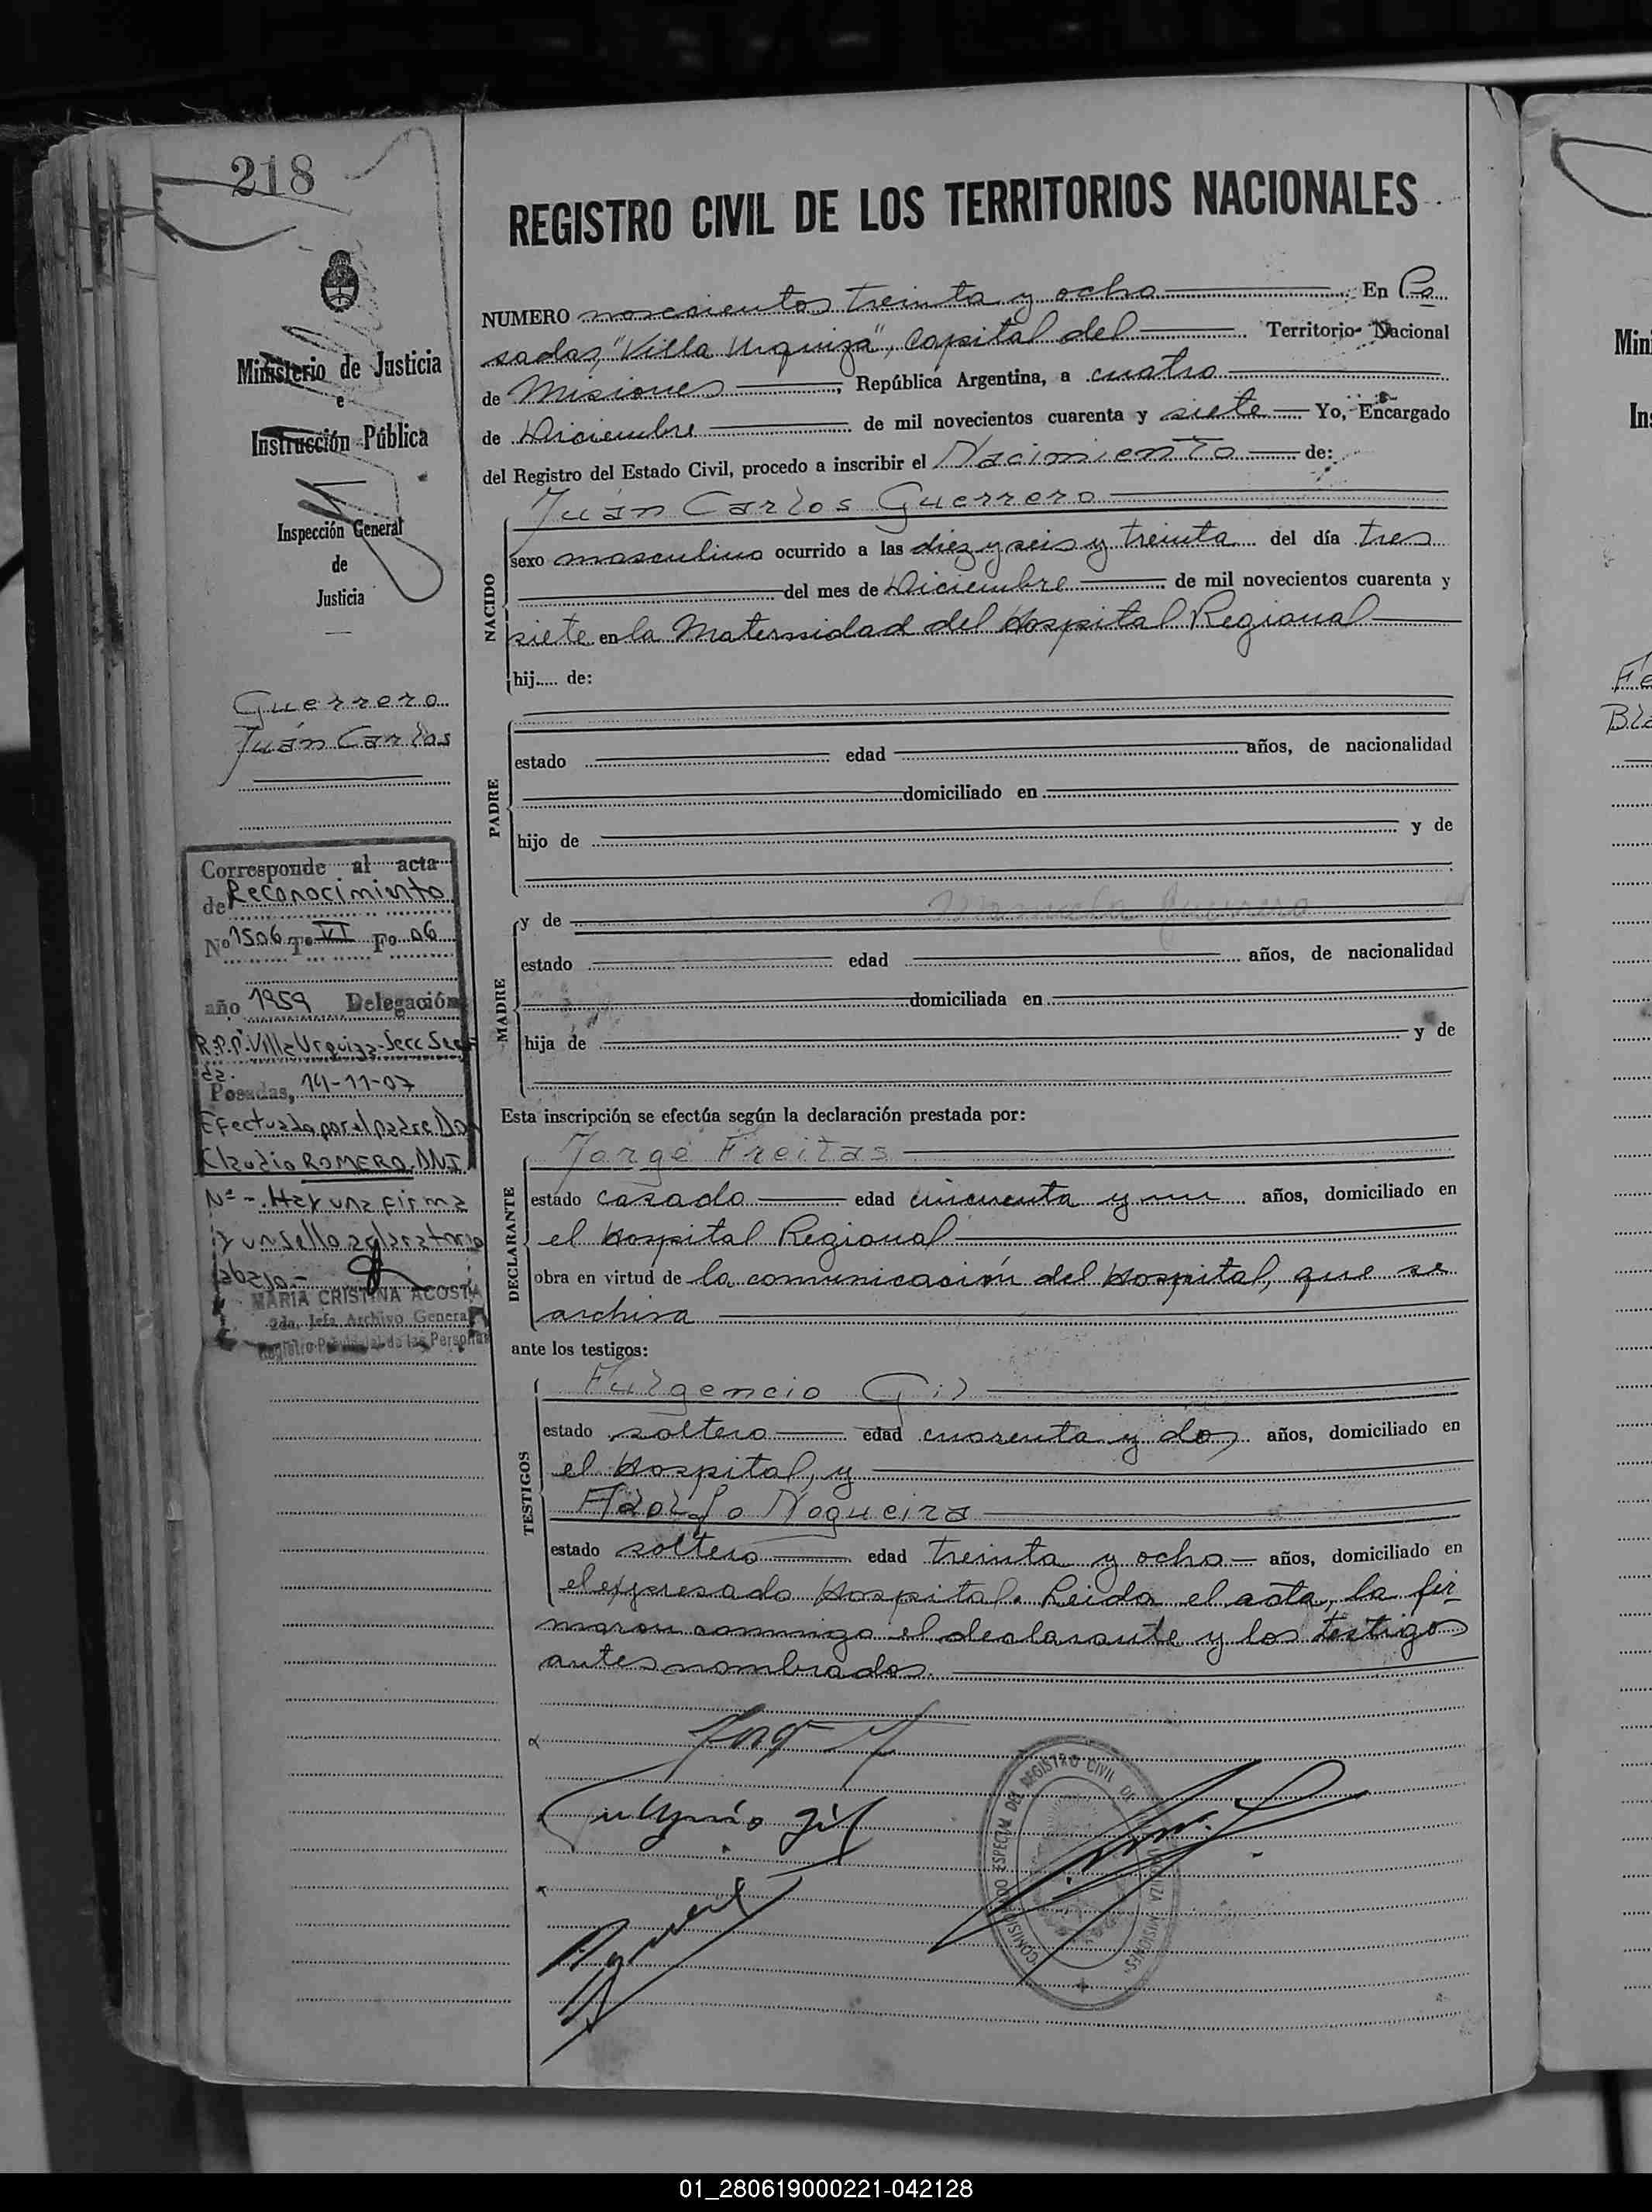 218
Ministerio de Justicia
e
Instrucción Pública
Inspección General
de
Justicia
Guerrero
Juán Carlos
Corresponde al acta
de Reconocimiento
Nº 1506 Tº VI Fº 06
año 1959 Delegación
R.P.P. Villa Urquiza- Secc Seg
da.
Posadas, 14-11-07
Efectuado por el padre Do
Claudio ROMERO. DNI
Nº -. Hay una firma
y un sello aclaratorio
abajo.-
MARIA CRISTINA ACOSTA
2da. Jefa Archivo General
Registro Provincial de las Personas
REGISTRO CIVIL DE LOS TERRITORIOS NACIONALES
NUMERO novecientos treinta y ocho En Po
sadas, "Villa Urquiza", Capital del Territorio Nacional
de Misiones, República Argentina, a cuatro
de Diciembre de mil novecientos cuarenta y siete Yo, Encargado
del Registro del Estado Civil, procedo a inscribir el Nacimiento de:
Juán Carlos Guerrero
NACIDO
sexo masculino ocurrido a las diez y seis y treinta del día tres
del mes de Diciembre de mil novecientos cuarenta y
siete en la Maternidad del Hospital Regional
hij..... de:
PADRE
estado edad años, de nacionalidad
domiciliado en
hijo de y de
MADRE
y de Manuela Guerrero
estado edad años, de nacionalidad
domiciliada en
hija de y de
Esta inscripción se efectúa según la declaración prestada por:
DECLARANTE
Jorge Freitas
estado casado edad cincuenta y un años, domiciliado en
el Hospital Regional
obra en virtud de la comunicación del Hospital, que se
archiva
ante los testigos:
TESTIGOS
Fulgencio Gil
estado soltero edad cuarenta y dos años, domiciliado en
el Hospital, y
Adolfo Nogueira
estado soltero edad treinta y ocho años, domiciliado en
el expresado Hospital. Leida el acta, la fir
maron conmigo el declarante y los testigos
antes nombrados.
Fulgencio Gil
COMISIONADO ESPECIAL DEL REGISTRO CIVIL DE URQUIZA MISIONES
01_280619000221-042128